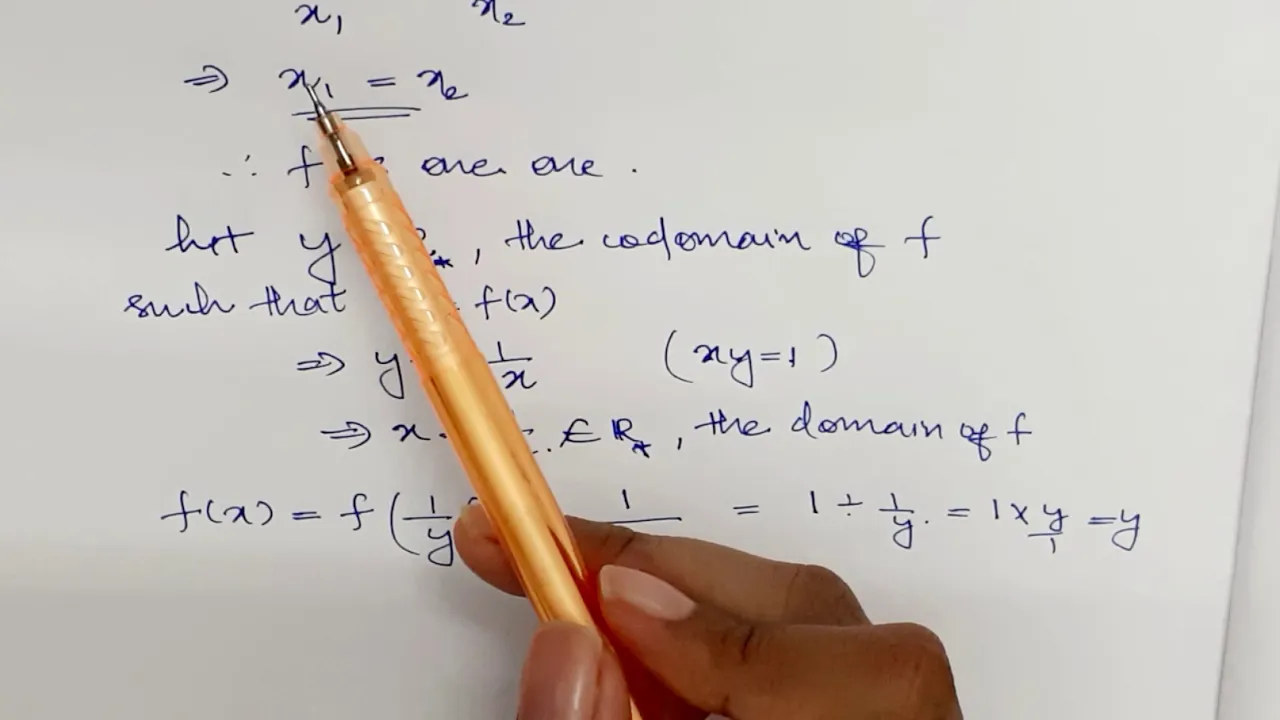 x₁ x₂
⇒ x₁ = x₂
∴ f one one .
let y R* , the codomain of f
such that = f(x)
⇒ y 1/x (xy=1)
⇒ x ∈ R* , the domain of f
f(x) = f(1/y 1 = 1 ÷ 1/y . = 1 × y/1 = y